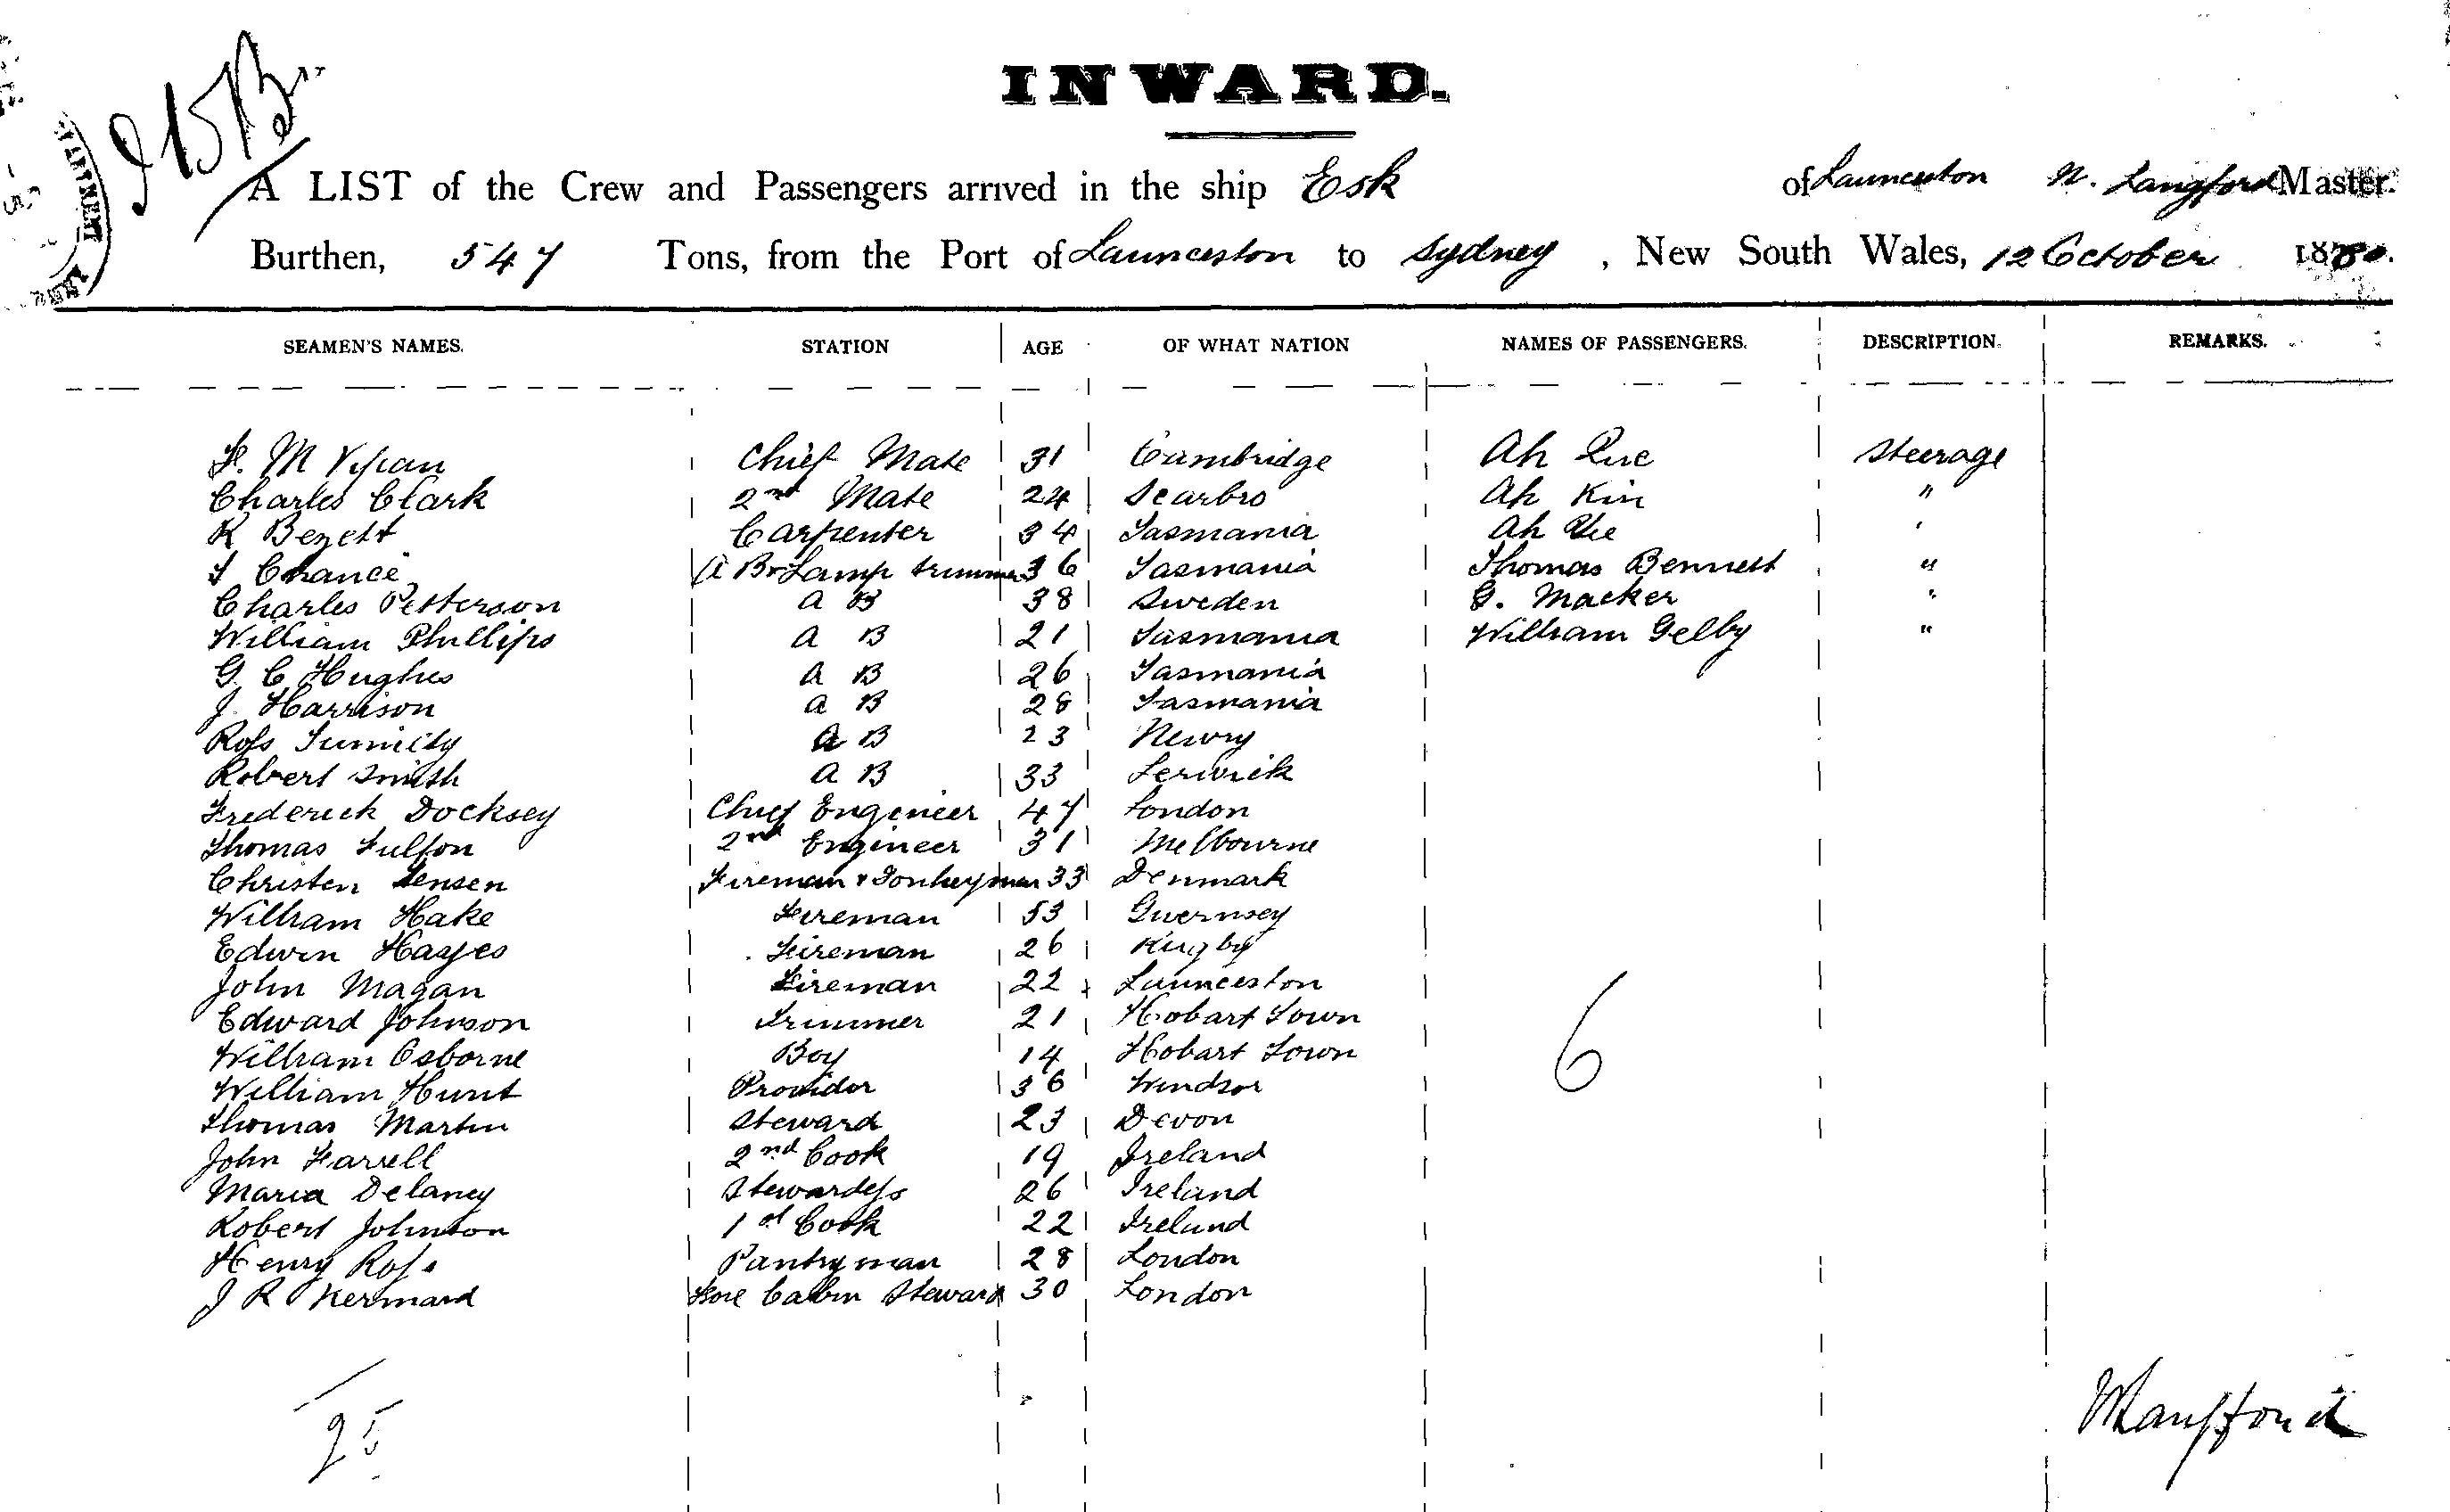 INWARD.
A LIST of the Crew and Passengers arrived in the ship Esk of Launceston W. Langford Master.
Burthen, 547 Tons, from the Port of Launceston to Sydney, New South Wales, 12 October 1880.
SEAMEN'S NAMES. STATION AGE OF WHAT NATION NAMES OF PASSENGERS. DESCRIPTION. REMARKS.
F. M Vipan Chief Mate 31 Cambridge Ah Que Steerage
Charles Clark 2nd Mate 24 Scarbro Ah Kin "
R Bezett Carpenter 34 Tasmania Ah "
Chance A B & Lamp trimmer 36 Tasmania Thomas Bennett "
Charles Petterson A B 38 Sweden G. Macker "
William Phillips A B 21 Tasmania William Gelby "
G C Hughes A B 26 Tasmania
J. Harrison A B 28 Tasmania
Ross A B 23 Newry
Robert Smith A B 33 Lerwick
Frederick Docksey Chief Engineer 47 London
Thomas Fulton 2nd Engineer 31 Melbourne
Christen Jensen Fireman & Donkeyman 33 Denmark
William Hake Fireman 53 Guernsey
Edwin Hayes Fireman 26 Rugby
John Magan Fireman 22 Launceston
Edward Johnson Trimmer 21 Hobart Town
William Osborne Boy 14 Hobart Town
William Hunt Providor 36 Windsor
Thomas Martin Steward 23 Devon
John Farrell 2nd Cook 19 Ireland
Maria Delaney Stewardess 26 Ireland
Robert Johnston 1st Cook 22 Ireland
Henry Ross Pantryman 28 London
J R Kermard Fore Cabin Steward 30 London
6
25
WLangford